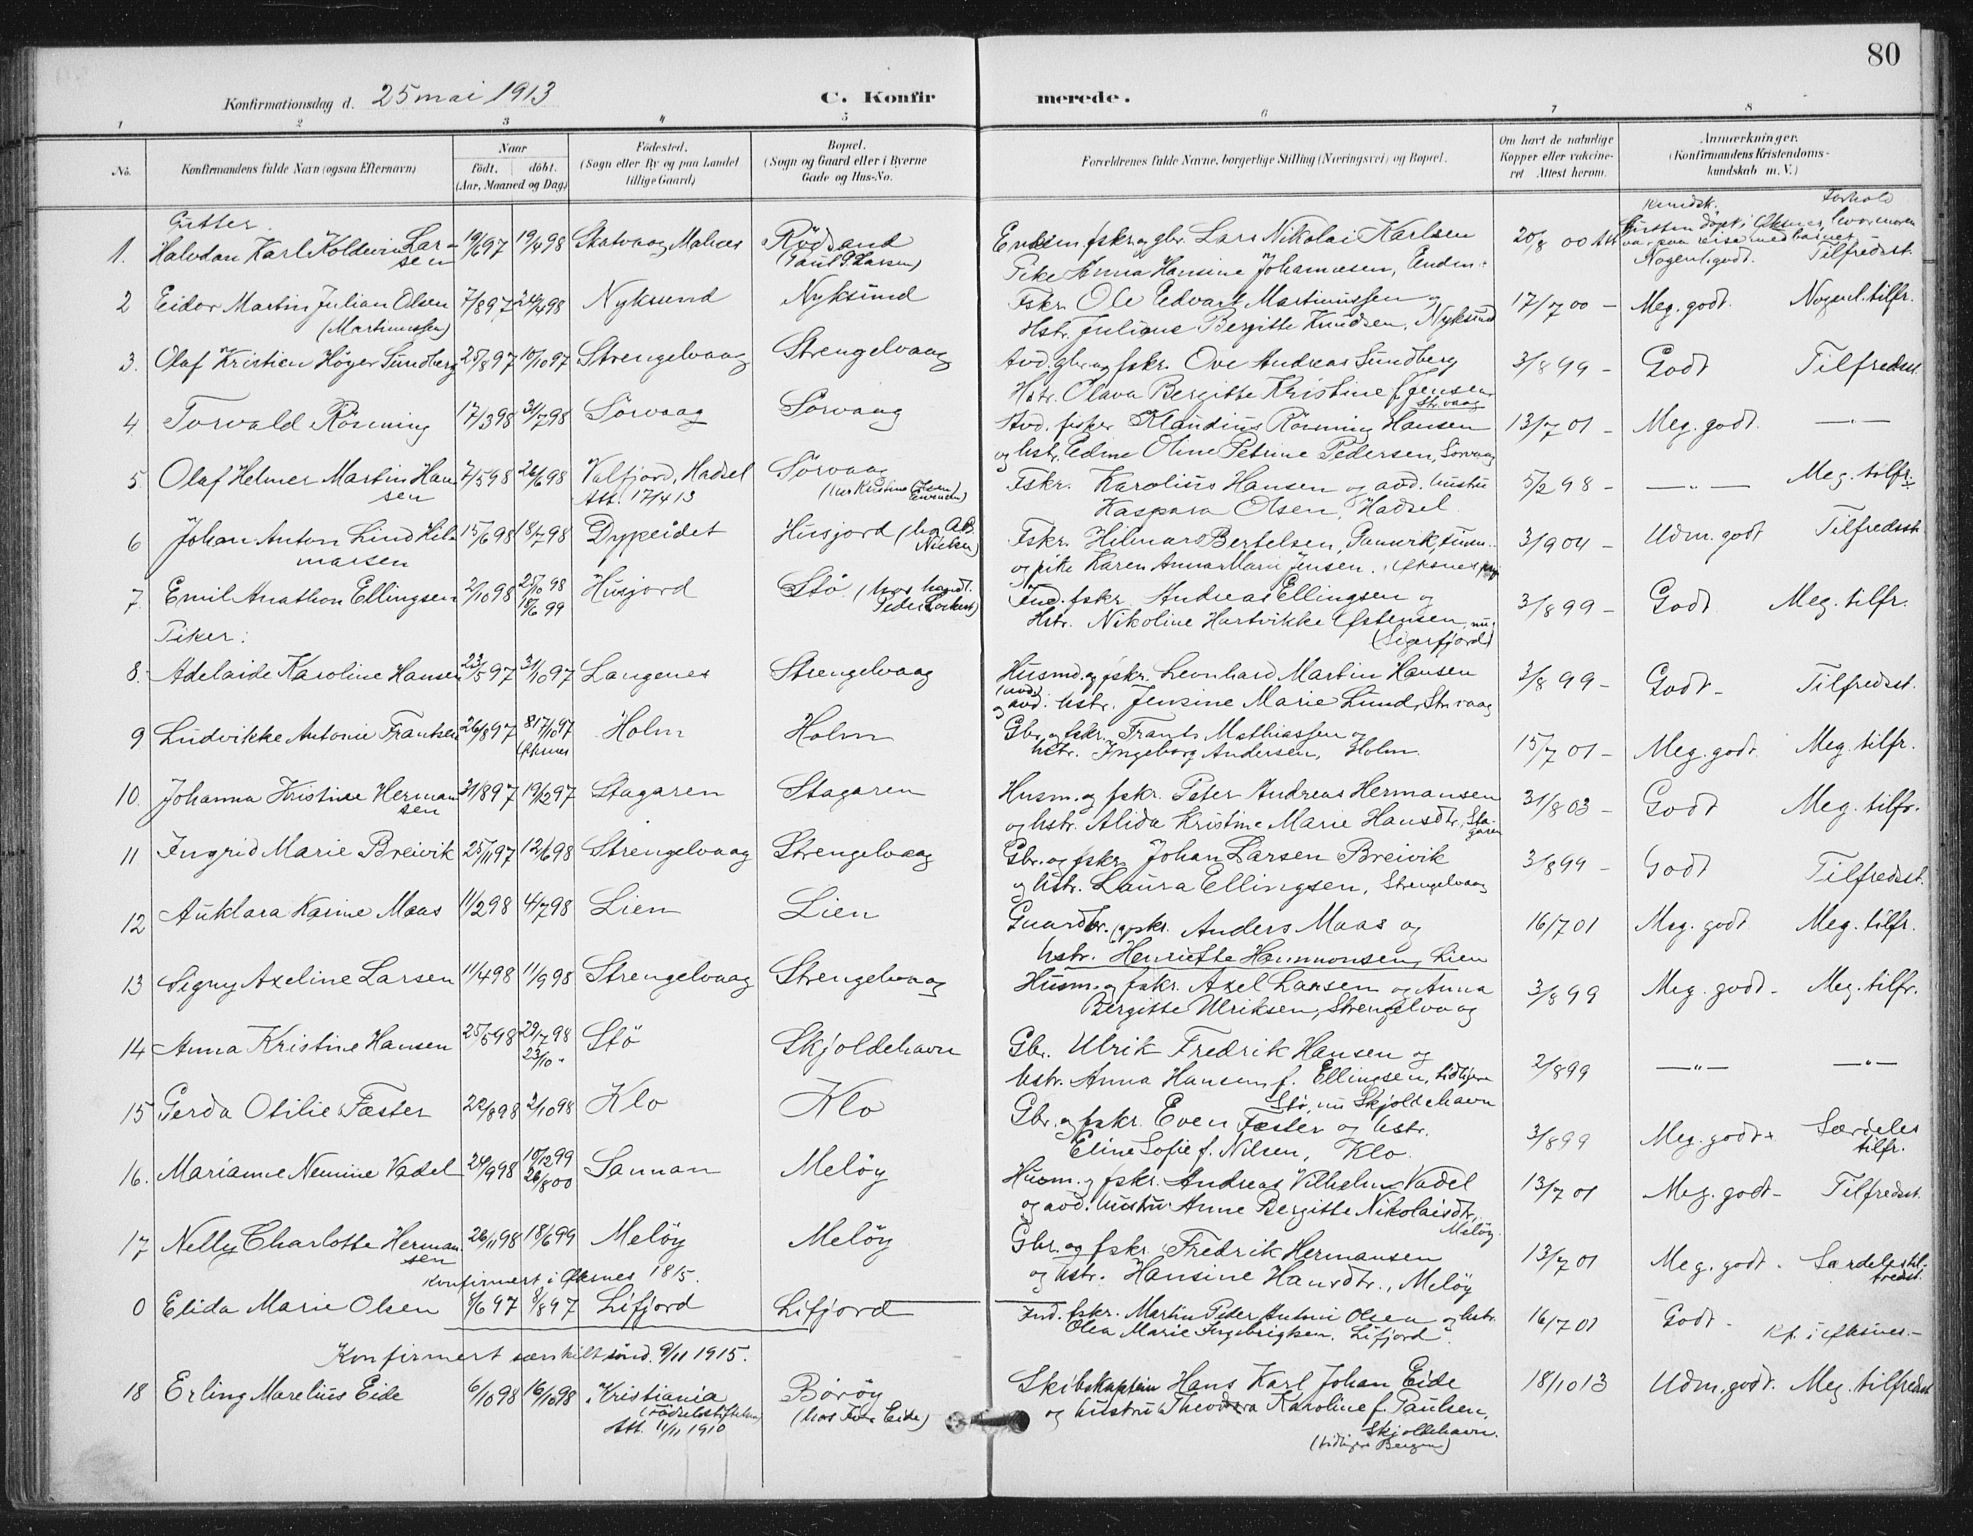 80
Konfirmationsdag d. 25 mai 1913 C. Konfirmerede.
1 2 3 4 5 6 7 8
No. Konfirmandens fulde Navn (ogsaa Efternavn) Naar født. døbt. (Aar, Maaned og Dag) Fødested. (Sogn eller By og paa Landet tillige Gaard) Bopæl. (Sogn og Gaard eller i Byerne Gade og Hus-No. Forældrenes fulde Navne, borgerlige Stilling (Næringsvei) og Bopæl. Om havt de naturlige Kopper eller vakcineret. Attest herom. Anmærkninger. (Konfirmandens Kristendomskundskab m. V.)
Gutter. Kundsk. Forhold
1. Halvdan Karl Koldevin Larsen 19/6 97 19/4 98 Skatvaag, Malnes Rødsand (Paul P. Larsen) fskr. og gbr. Lars Nikolai Karlsen
Pike Anna Hansine Johannesen, 20/8 00 Nogenl. godt. Tilfredsst.
2 Eidor Martin Julian Olsen (Martinussen) 7/8 97 24/4 98 Nyksund Nyksund Fskr. Ole Edvart Martinussen og
Hstr. Juliane Bergitte Knudsen, Nyksund 17/7 00 - Meg. godt. Nogenl. tilfr.
3. Olaf Kristian Høyer Sundberg 25/8 97 10/10 97 Strengelvaag Strengelvaag Avd. gbr. og fskr. Ove Andreas Sundberg
Hstr. Olava Bergitte Kristine f. Jensen, Str.vaag 3/8 99 - Godt Tilfredsst
4. Torvald Rönning 17/3 98 31/7 98 Sørvaag Sørvaag Avd. fisker Klaudius Rönning Hansen
og hstr. Edine Oline Petrine Pedersen, Sørvaag 13/7 01 - Meg. godt. -"-
5. Olaf Helmer Martin Hansen 7/5 98 26/6 98 Valfjord, Hadsel Att. 17/4 13 Sørvaag Fskr. Karolius Hansen og avd. hustru
Kaspara Olsen, Hadsel 5/2 98 - -"- Meg. tilfr.
6 Johan Anton Lind Hilmarsen 15/6 98 18/7 98 Dypeidet Husjord Fskr. Hilmar Bertelsen,
og pike Karen Anna Marie Jensen, 3/9 04 - Udm. godt Tilfredsst.
7. Emil Anathon Ellingsen 2/10 98 25/10 98 18/6 99 Husjord Stø (hos handl. Peder Lockert) fskr. Andreas Ellingsen og
Hstr. Nikoline Hartvikke Østensen, nu: (Sigerfjord) 3/8 99 - Godt Meg. tilfr.
Piker:
8. Adelaide Karoline Hansen 23/5 97 31/10 97 Langenes Strengelvaag Husmd. og fskr. Leonhard Martin Hansen
og avd. hstr. Jensine Marie Lund, Str.vaag 3/8 99 - Godt - Tilfredsst.
9 Ludvikke Antonie Frantsen 26/8 97 17/10 97 Øksnes Holm Holm Gbr. og fskr. Frants Mathiassen og
hstr. Ingeborg Andersen, Holm. 15/7 01 - Meg. godt. Meg. tilfr.
10. Johanna Kristine Hermansen 31/8 97 19/12 97 Stagaren Stagaren Husm. og fskr. Peter Andreas Hermansen
og hstr. Alida Kristine Marie Hansdtr, Stagaren 31/8 03 - Godt Meg. tilfr.
11 Ingrid Marie Breivik 25/11 97 12/6 98 Strengelvaag Strengelvaag Gbr. og fskr. Johan Larsen Breivik
og hstr. Laura Ellingsen, Strengelvaag 3/8 99 - Godt Tilfredsst.
12 Auklara Karine Maas 11/2 98 4/7 98 Lien Lien Gaardbr. og fskr. Anders Maas og
hstr. Henriette Hammonsen, Lien 16/7 01 Meg. godt Meg. tilfr.
13 Signy Axeline Larsen 11/4 98 11/9 98 Strengelvaag Strengelvaag Husm. og fskr. Axel Larsen og Anna
Bergitte Ulriksen, Strengelvaag 3/8 99 Meg. godt - Meg. tilfr.
14 Anna Kristine Hansen 25/5 98 29/7 98 23/10 " Stö Skjoldehavn Gbr. Ulrik Fredrik Hansen og
hstr. Anna Hansen f. Ellingsen, tidligere
Stø, nu Skjoldehavn 2/8 99 -"- -"-
15 Gerda Otilie Fæster 22/8 98 2/10 98 Klo Klo Gbr. og fskr. Even Fæster og hstr.
Eline Sofie f. Nilsen, Klo. 3/8 99 Meg. godt. Særdeles tilfr.
16. Marianne Nemine Vadel 24/9 98 10/12 99 26/8 00 Sannan Meløy Husm. og fskr. Andreas Vilhelm Vadel
og avd. hustru Anne Bergitte Nikolaisdtr, Meløy 13/7 01 Meg. godt - Tilfredsst.
17 Nelly Charlotte Hermansen 26/11 98 18/6 99 Meløy Meløy Gbr. og fskr. Fredrik Hermansen
og hstr. Hansine Hansdtr., Meløy 13/7 01 Meg. godt - Særdeles tilfredsst.
Konfirmert i Øksnes 1815.
0 Elida Marie Olsen 8/6 97 8/8 97 Lifjord Lifjord Ind. fskr. Martin Peter Antoni Olsen og hstr.
Olea Marie Ingebrigtsen. Lifjord. 16/7 01 Godt - Kf. i Øksnes.-
Konfirmert særskilt sönd. 9/11 1915.
18 Erling Marelius Eide 6/10 98 16/10 98 Kristiania (Födselsstiftelsen) Att. 11/11 1910 Børøy (hos Eide) Skibskaptein Hans Karl Johan Eide
og hustru Theodora Karoline f. Paulsen,
Skjoldehavn. (tidligere Bergen) 18/10 13 Udm. godt. Meg. tilfredsst